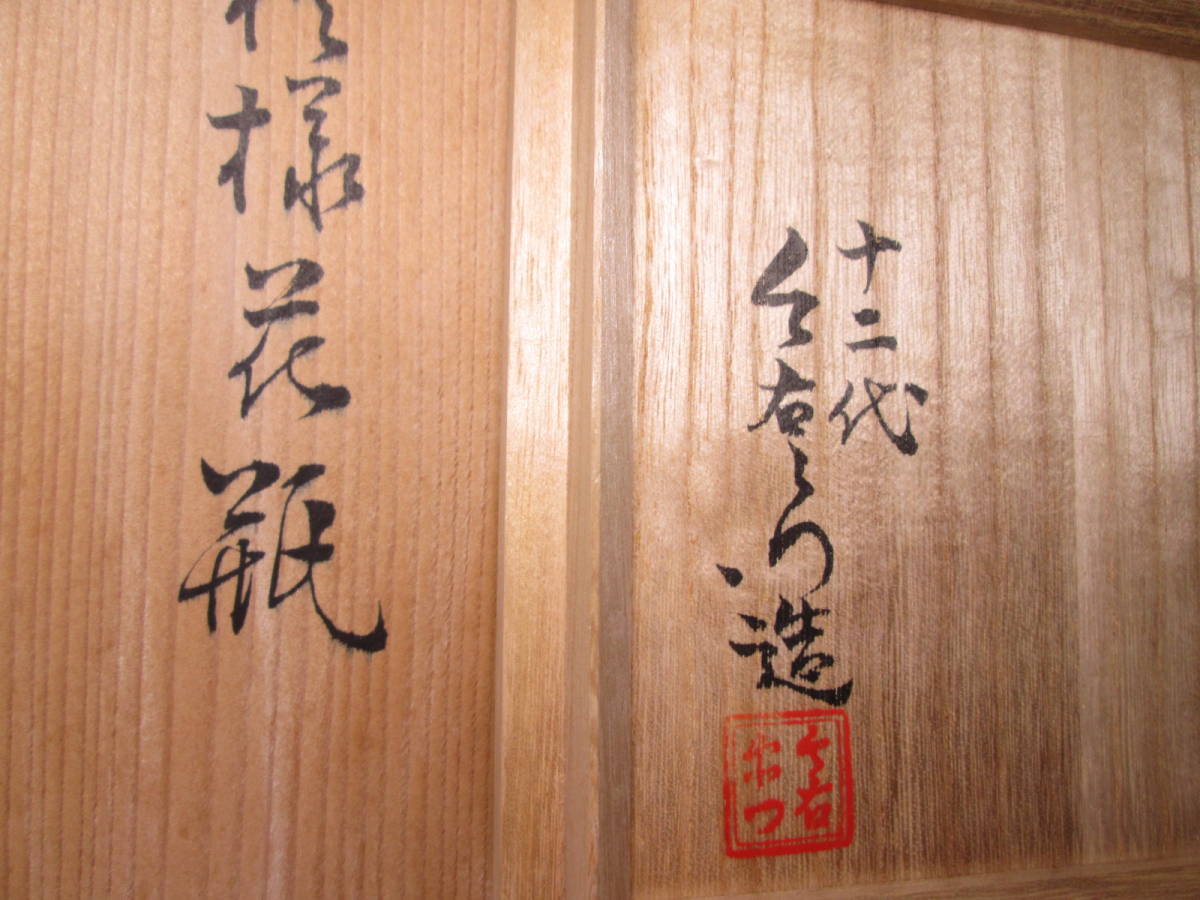 十二代
今右衛門造
今右衛門
模様花瓶